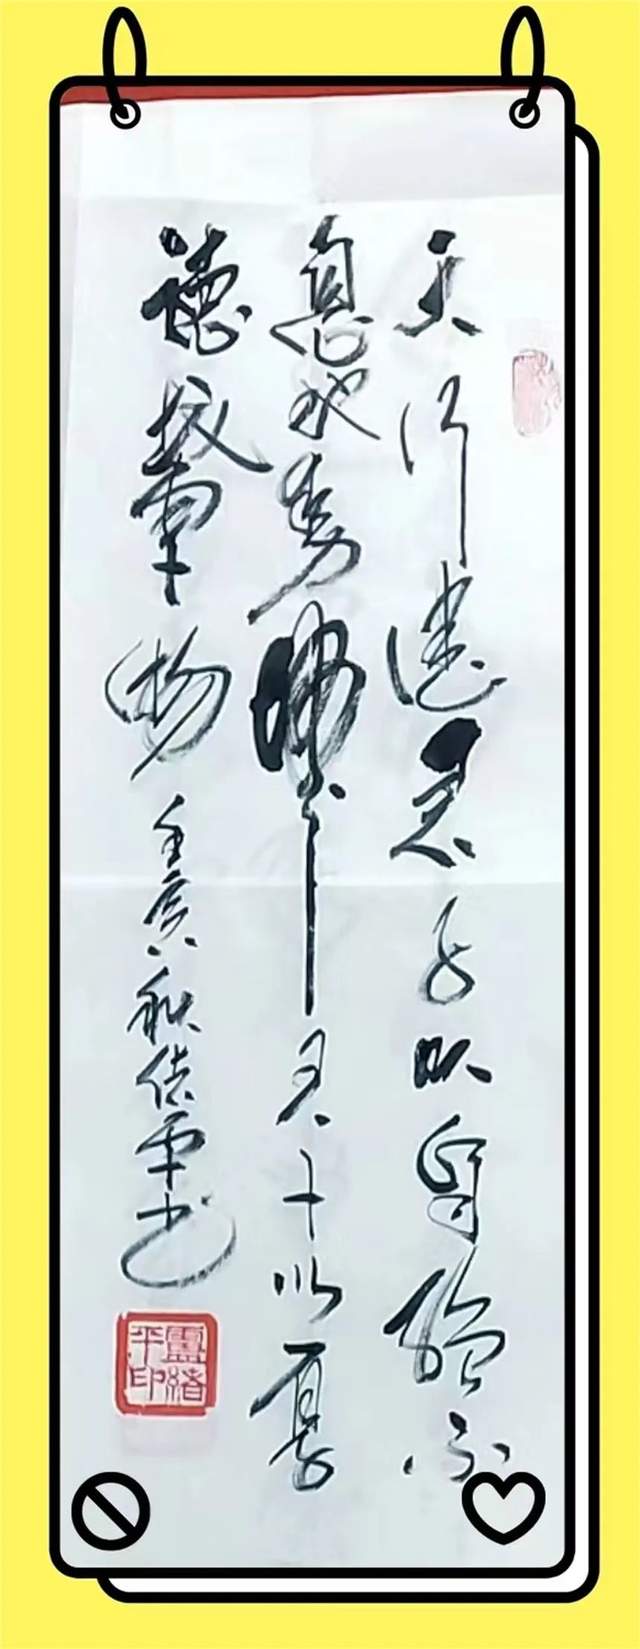 天行健君子以自強不
息地勢坤君子以厚
德載物
壬寅秋緒平书
盧緒平印